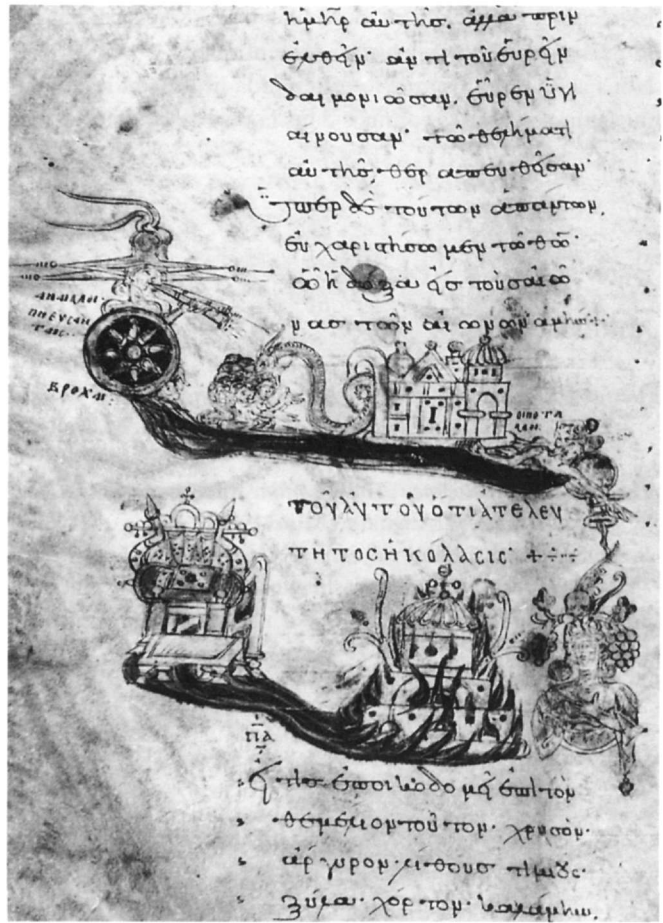 αὐτῆς. ἀλλὰ πρὶν
ἐλθεῖν· ἀντὶ τοῦ εὑρεῖν
δαιμονιῶσαν. εὗρεν ὑγι
αίνουσαν· τῶ θελήματι
αὐτῆς· θεραπευθεῖσαν·
ὑπὲρ δὲ τούτων ἁπάντων,
εὐχαριστήσωμεν τῶ θῶ·
ὧ ἡ δόξα εἰς τοὺς αἰῶ
νας τῶν αἰώνων ἀμήν
ΒΡΟΧΗ:
ΤΟΥ ΑΥΤΟΥ ΟΤΙ ΑΤΕΛΕΥ
ΤΗΤΟΣ Η ΚΟΛΑΣΙΣ·
εἴ τις ἐποικοδομεῖ ἐπὶ τὸν
θεμέλιον τοῦτον· χρυσόν·
ἄργυρον· λίθους τιμίους·
ξύλα· χόρτον· καλάμην.